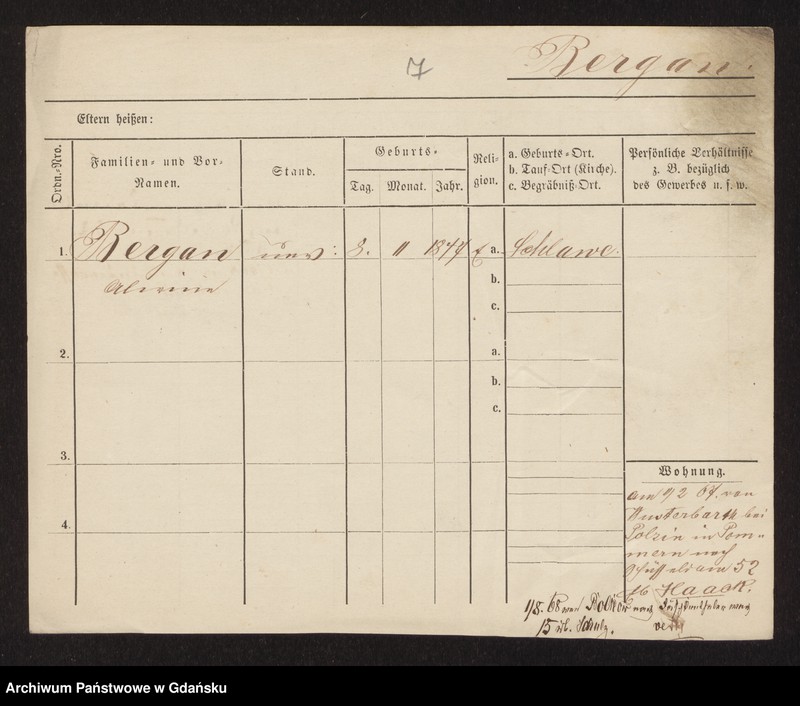 7
Bergan.
Eltern heißen:
Ordn.-Nro.
Familien- und Vor-
Namen.
Stand.
Geburts-
Tag. Monat. Jahr.
Reli-
gion.
a. Geburts-Ort.
b. Tauf-Ort (Kirche).
c. Begräbniß-Ort.
Persönliche Verhältnisse
z. B. bezüglich
des Gewerbes u. s. w.
1. Bergan unv: 8. 11 1847 a. Schlawe.
Alwine
b.
c.
2. a.
b.
c.
3.
4.
Wohnung.
am 1/2 67. von
bei
Polzin in Pom-
mern nach
52
Haack.
1/8. 68 nach
15 Schulz.